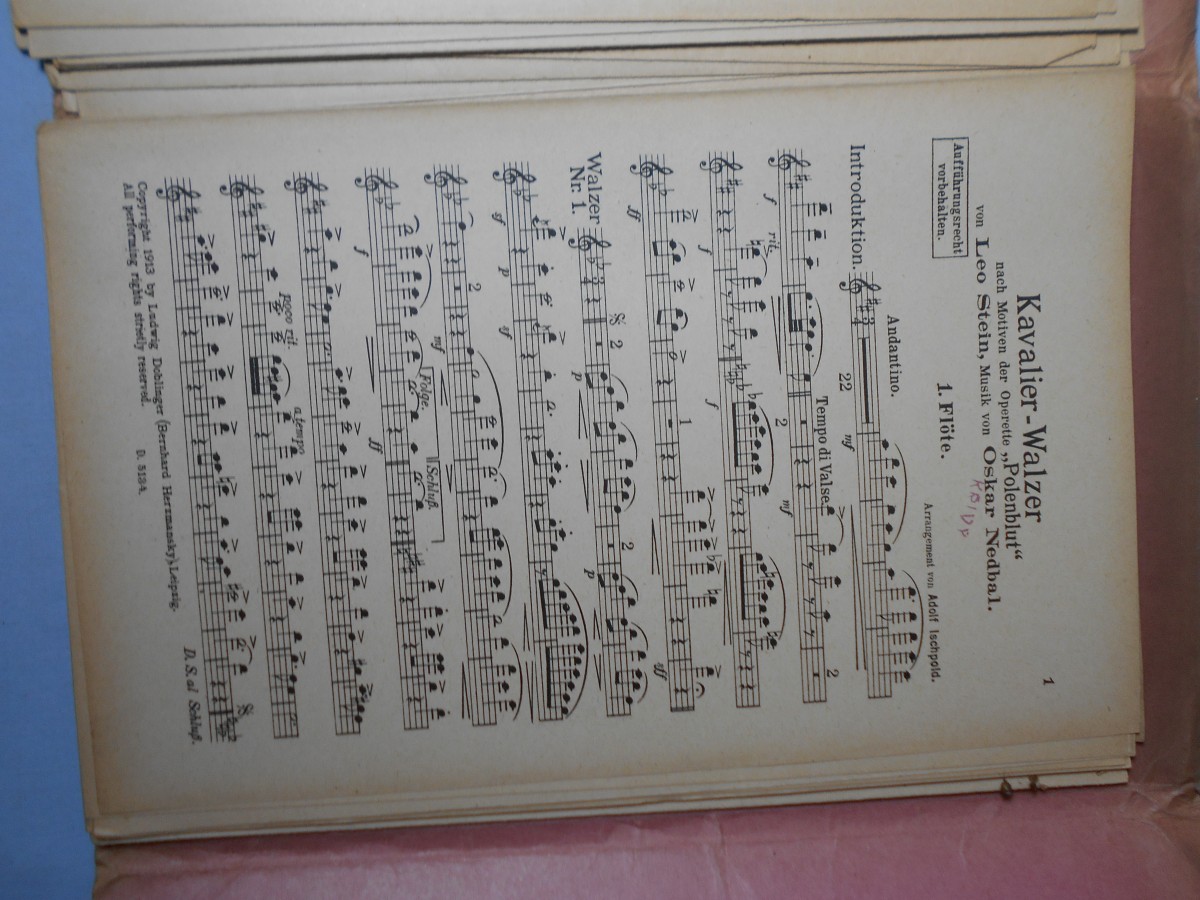 1
Kavalier-Walzer
nach Motiven der Operette „Polenblut“
von Leo Stein, Musik von Oskar Nedbal.
Aufführungsrecht
vorbehalten.
1. Flöte.
Arrangement von Adolf Ischpold.
Andantino.
Introduktion.
3
4
22
mf
f
rit.
Tempo di Valse.
2
mf
2
f
f
2
ff
1
ff
Walzer
Nr. 1.
3
4
2
p
2
p
sf
p
sf
2
mf
Folge.
Schluß.
f
ff
poco rit.
a tempo
D. S. al Schluß.
Copyright 1913 by Ludwig Doblinger (Bernhard Herzmansky) Leipzig.
All performing rights strictly reserved.
D. 5134.